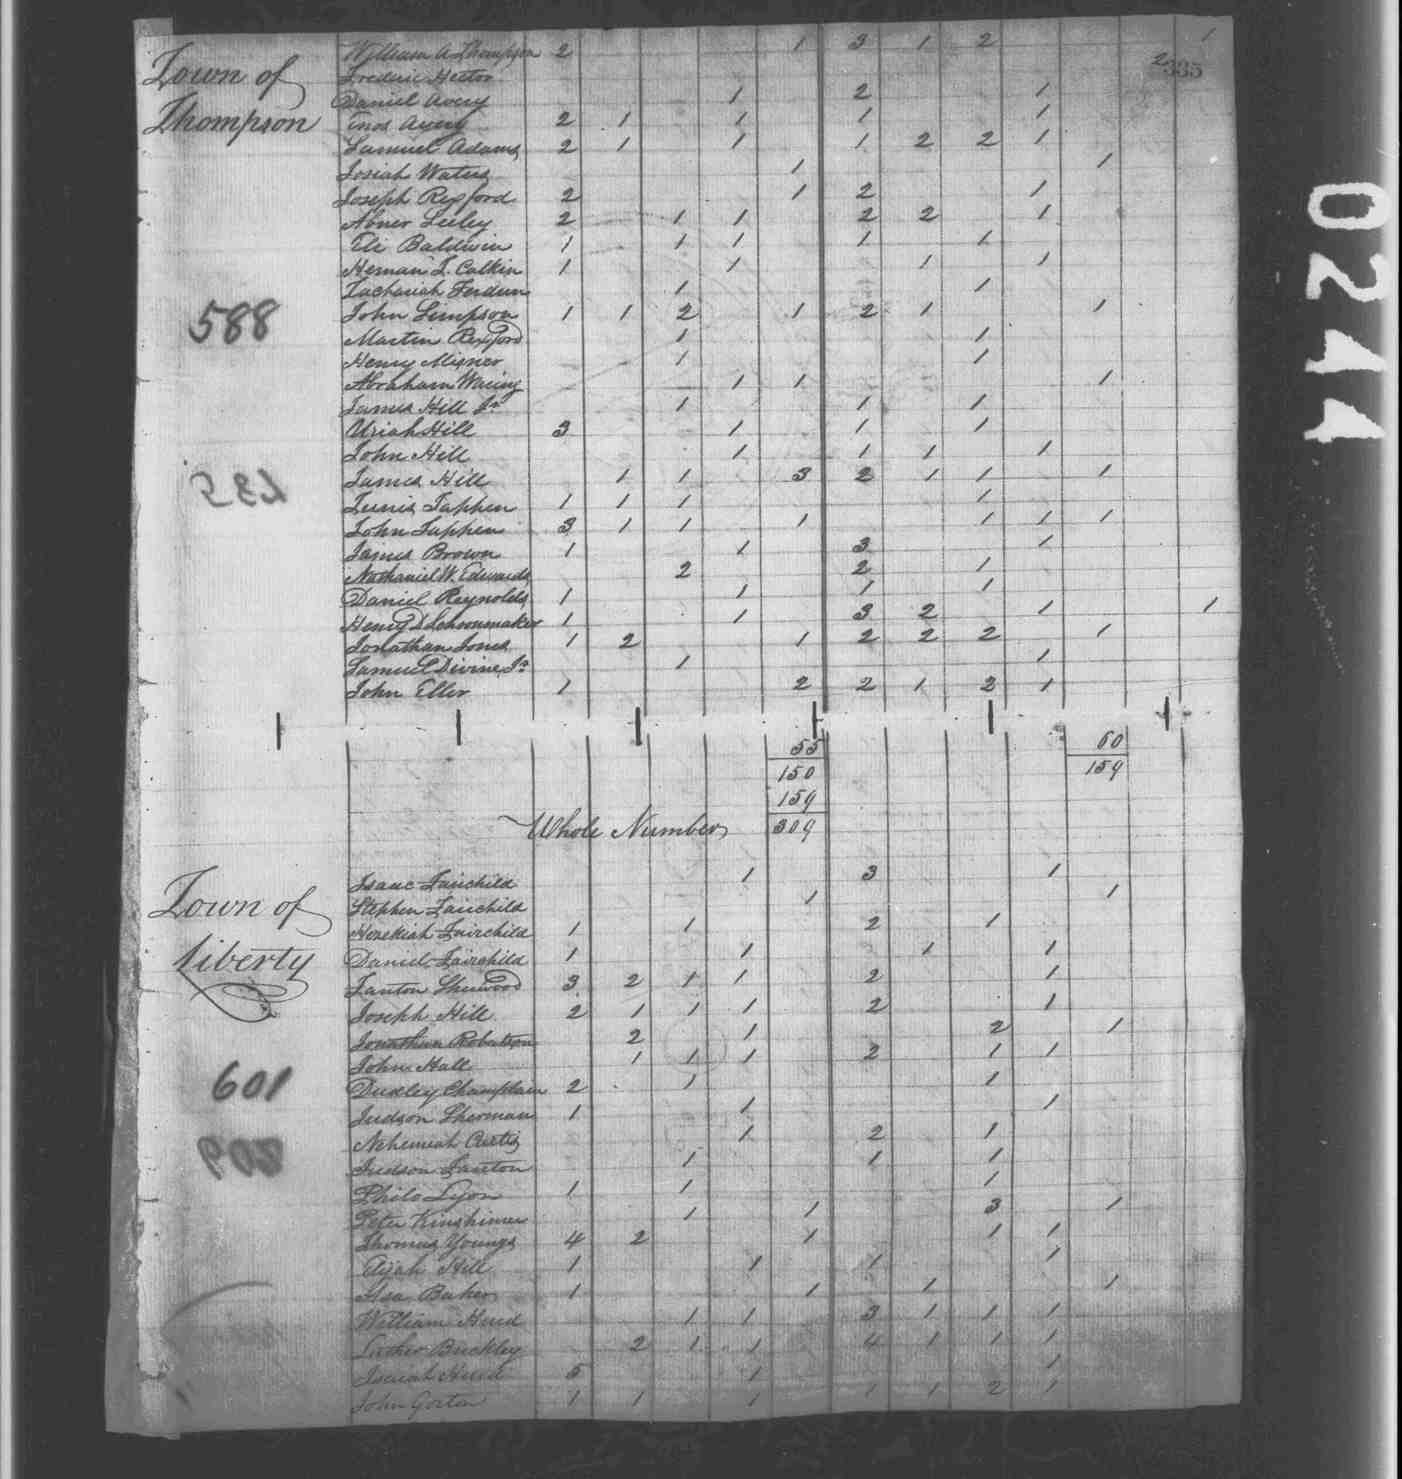 Town of
Thompson
William A Thompson 2 1 3 1 2 1
2 335
Frederic Hector
Daniel Avery 1 2 1
Enos Avery 2 1 1 1 1
Samuel Adams 2 1 1 1 2 2 1
Josiah Waters 1 1
Joseph Rexford 2 1 2 1
Abner Seeley 2 1 1 2 2 1
Eli Baldwin 1 1 1 1 1
Heman T. Calkin 1 1 1 1
Zachariah Ferdun 1 1
588
John Simpson 1 1 2 1 2 1 1
Martin Rexford 1 1
Henry Misner 1 1
Abraham Waring 1 1 1
James Hill Jr 1 1 1
Uriah Hill 3 1 1 1
John Hill 1 1 1 1
James Hill 1 1 3 2 1 1 1
Tunis Tappen 1 1 1 1
John Tappen 3 1 1 1 1 1 1
James Brown 1 1 3 1
Nathaniel W. Edwards 2 2 1
Daniel Reynolds 1 1 1 1
Henry D Schoonmaker 1 1 3 2 1 1
Jonathan Jones 1 2 1 2 2 2 1
Samuel Divine Jr 1 1
John Eller 1 2 2 1 2 1
55 60
150 159
159
Whole Number 309
Town of
Liberty
Isaac Fairchild 1 3 1
Stephen Fairchild 1 1
Hezekiah Fairchild 1 1 2 1
Daniel Fairchild 1 1 1 1
Fanton Sherwood 3 2 1 1 2 1
Joseph Hill 2 1 1 1 2 1
Jonathan Robertson 2 1 2 1
John Hall 1 1 1 2 1 1
601
Dudley Champlain 2 1 1
Judson Sherman 1 1 1
Nehemiah Curtis 1 2 1
Judson Fanton 1 1 1
Philo Lyon 1 1 1
Peter Kinshimer 1 1 3 1
Thomas Youngs 4 2 1 1 1
Elijah Hill 1 1 1 1
Asa Baker 1 1 1 1
William Hurd 1 1 3 1 1 1
Luther Buckley 2 1 1 4 1 1 1
Isaiah Hurd 5 1 1
John Gorton 1 1 1 1 1 2 1
0244